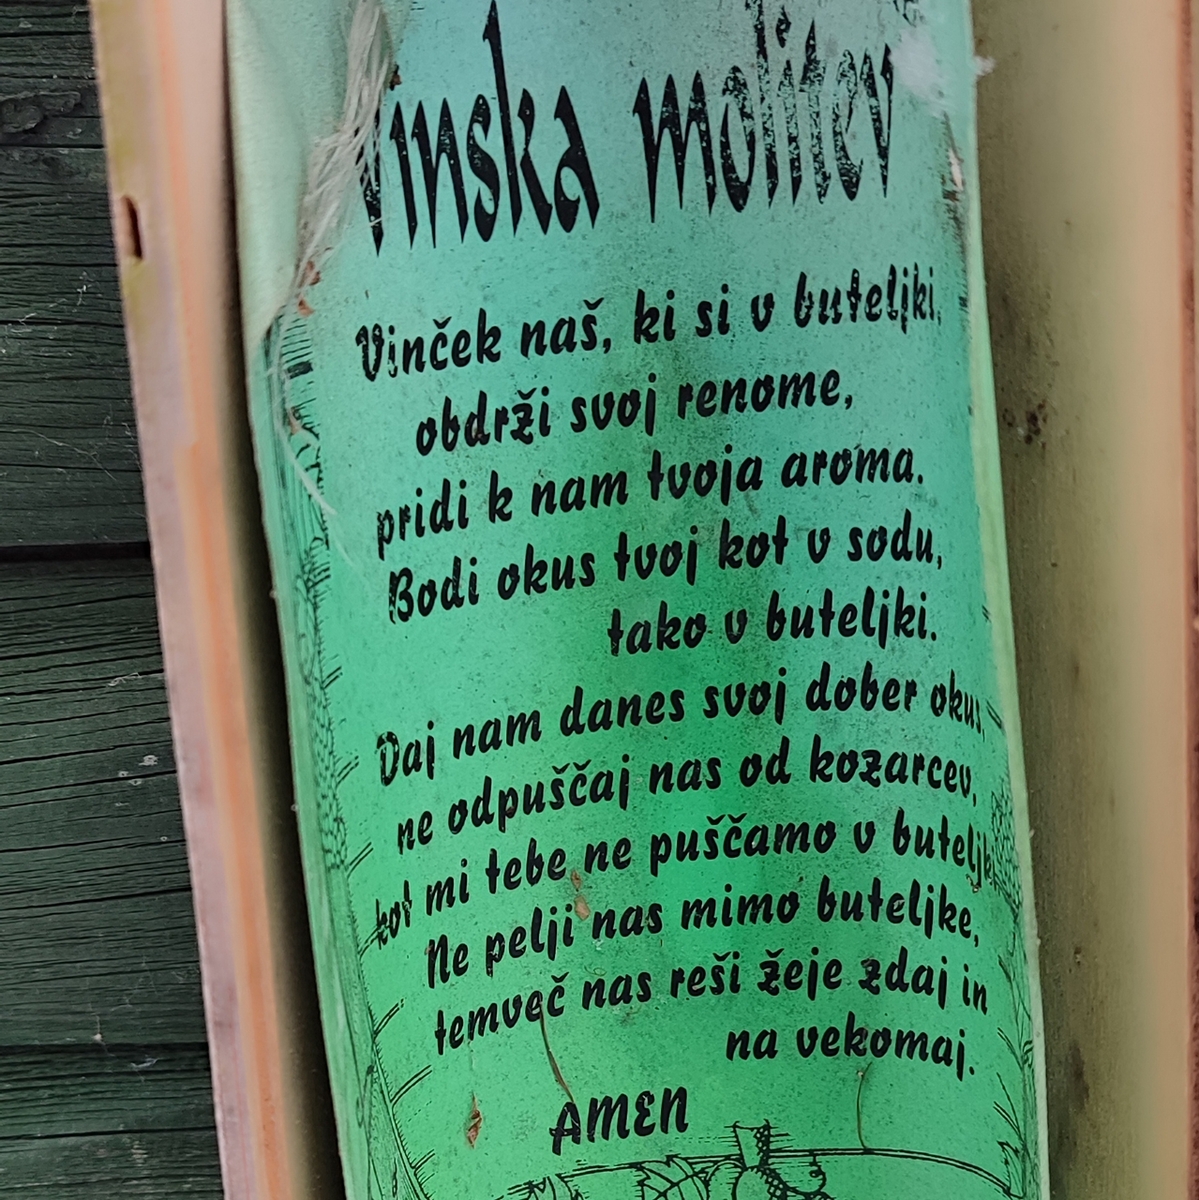 Vinska molitev
Vinček naš, ki si v buteljki,
obdrži svoj renome,
pridi k nam tvoja aroma.
Bodi okus tvoj kot v sodu,
tako v buteljki.
Daj nam danes svoj dober okus,
ne odpuščaj nas od kozarcev,
kot mi tebe ne puščamo v buteljki
Ne pelji nas mimo buteljke,
temveč nas reši žeje zdaj in
na vekomaj.
AMEN